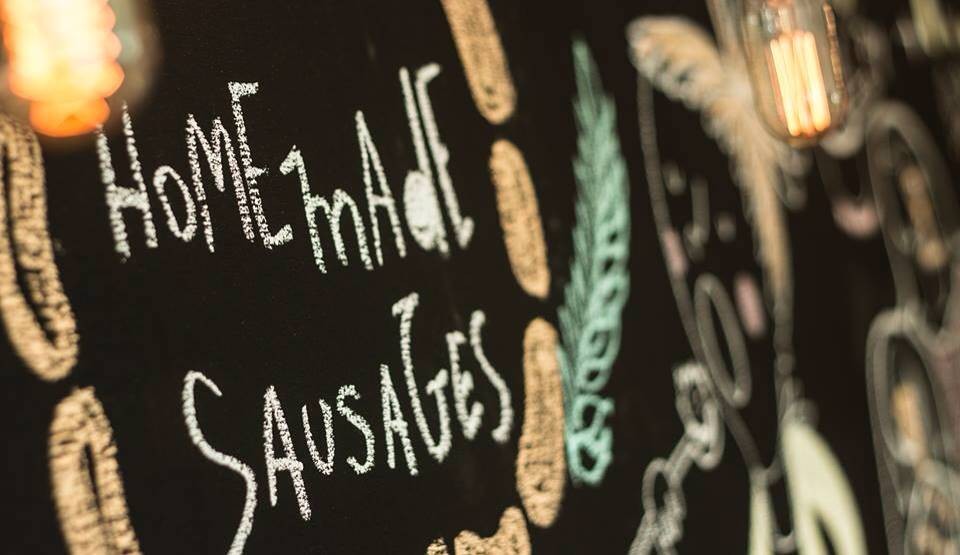 HOMEmAdE
SAUSAGES